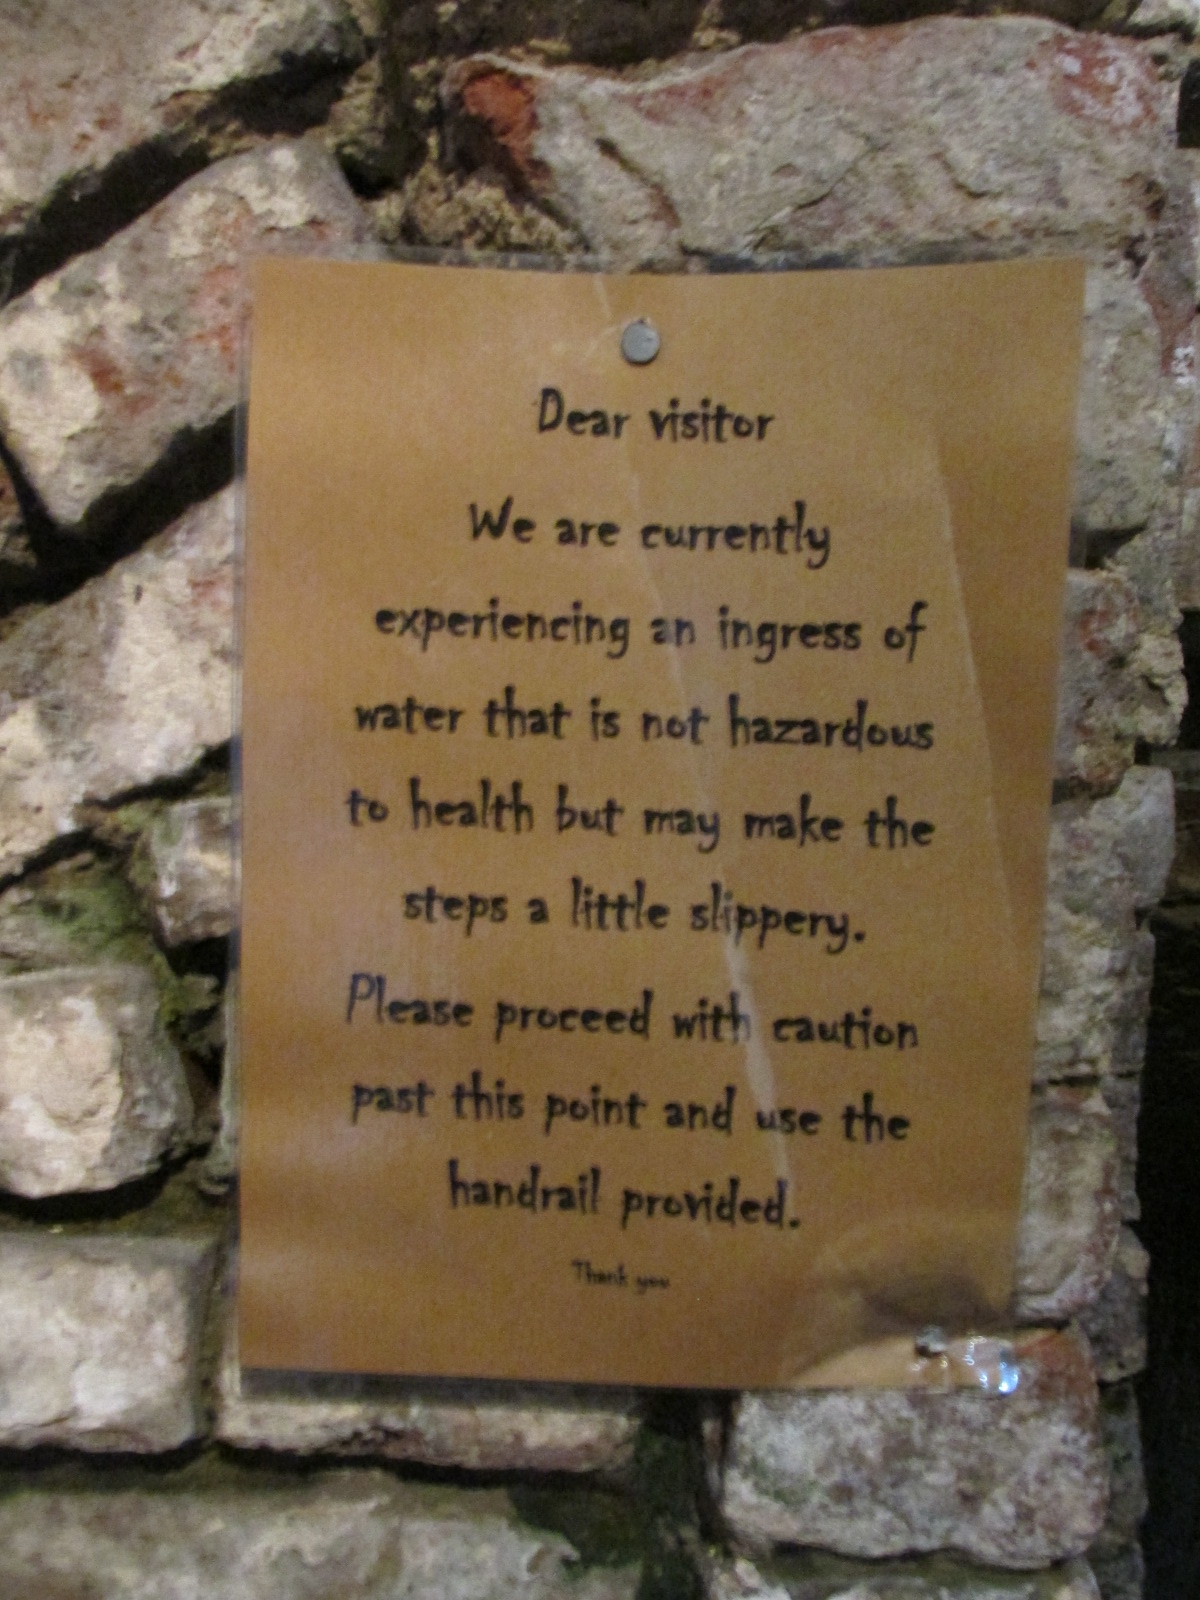 Dear visitor
We are currently
experiencing an ingress of
water that is not hazardous
to health but may make the
steps a little slippery.
Please proceed with caution
past this point and use the
handrail provided.
Thank you